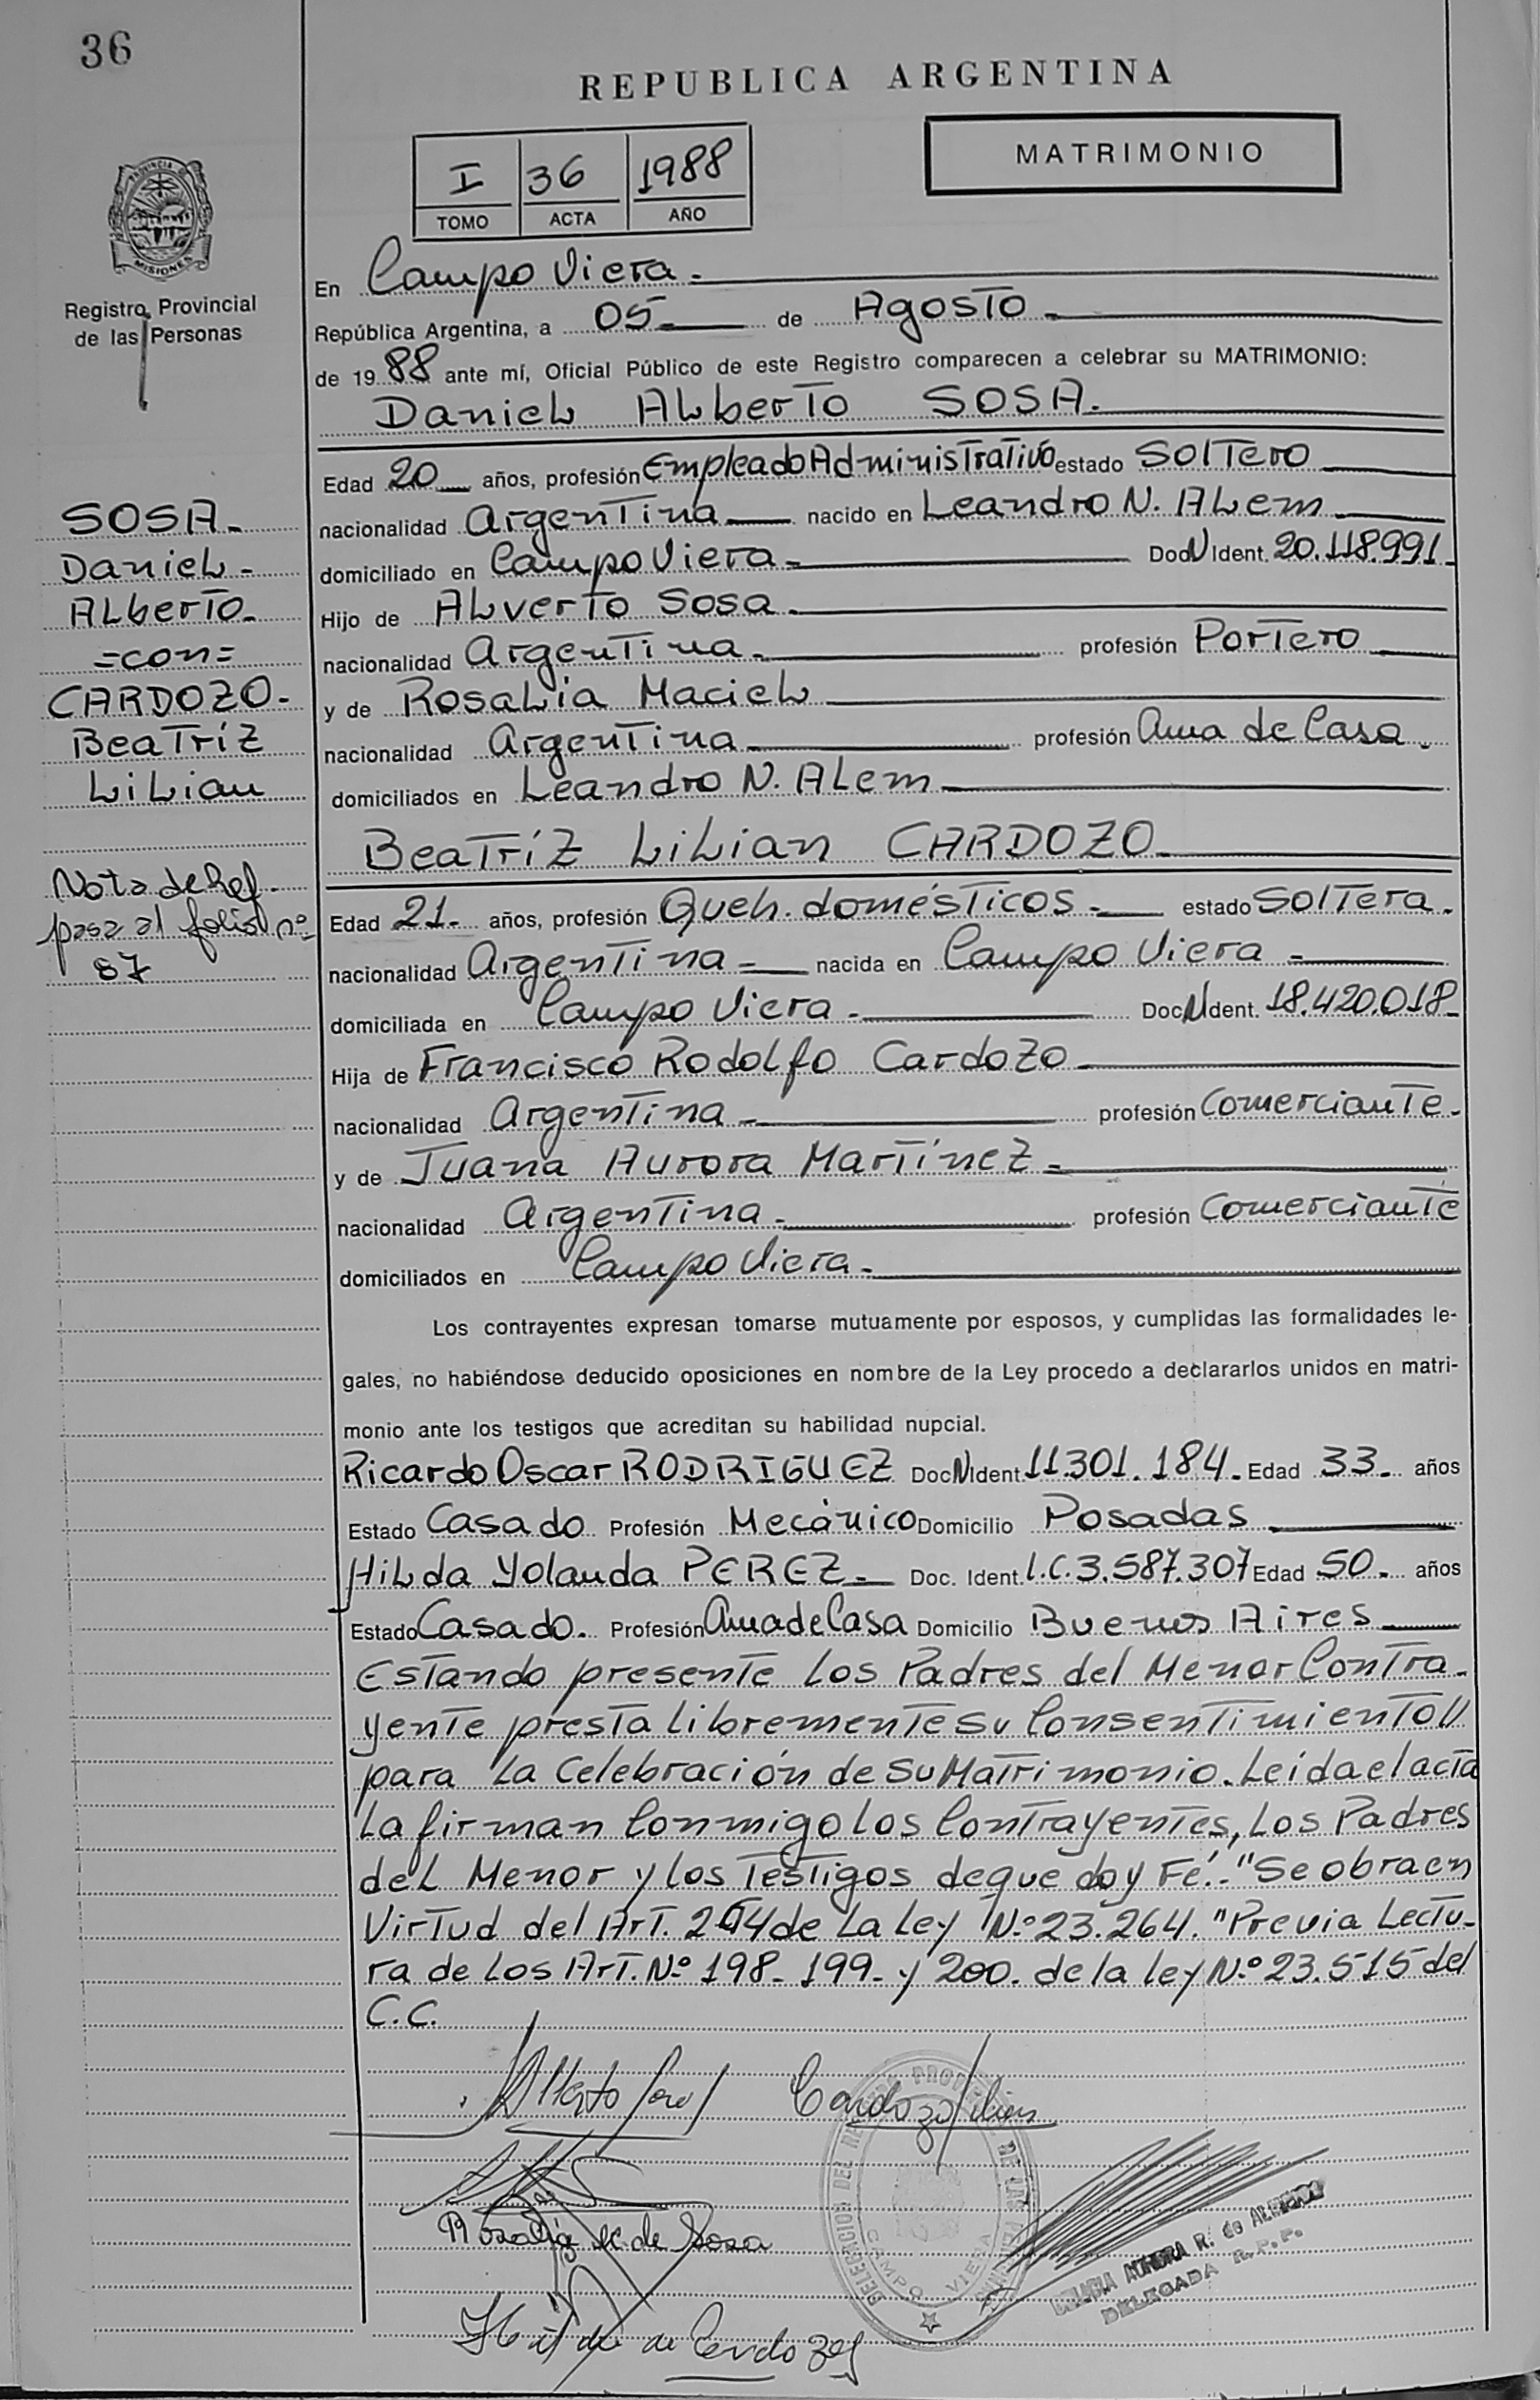 36
REPUBLICA ARGENTINA
MATRIMONIO
I 36 1988
TOMO ACTA AÑO
PROVINCIA DE
MISIONES
Registro Provincial
de las Personas
En Campo Viera.
República Argentina, a 05 de Agosto
de 1988 ante mí, Oficial Público de este Registro comparecen a celebrar su MATRIMONIO:
Daniel Alberto SOSA.
Edad 20 años, profesión Empleado Administrativo estado Soltero
nacionalidad Argentina nacido en Leandro N. Alem
domiciliado en Campo Viera Doc N Ident. 20.118.991
Hijo de Alverto Sosa
nacionalidad Argentina profesión Portero
y de Rosalia Maciel
nacionalidad Argentina profesión Ama de Casa.
domiciliados en Leandro N. Alem
SOSA
Daniel
Alberto
=con=
CARDOZO
Beatríz
Lilian
Nota de Ref.
pasa al folio nº
87
Beatríz Lilian CARDOZO
Edad 21 años, profesión Queh. domésticos estado Soltera.
nacionalidad Argentina nacida en Campo Viera
domiciliada en Campo Viera Doc N Ident. 18.420.018
Hija de Francisco Rodolfo Cardozo
nacionalidad Argentina profesión Comerciante
y de Juana Aurora Martínez
nacionalidad Argentina profesión Comerciante
domiciliados en Campo Viera
Los contrayentes expresan tomarse mutuamente por esposos, y cumplidas las formalidades le-
gales, no habiéndose deducido oposiciones en nombre de la Ley procedo a declararlos unidos en matri-
monio ante los testigos que acreditan su habilidad nupcial.
Ricardo Oscar RODRIGUEZ Doc N Ident 11.301.184 Edad 33 años
Estado Casado Profesión Mecánico Domicilio Posadas
Hilda Yolanda PEREZ Doc. Ident. L.C. 3.587.307 Edad 50 años
Estado Casado. Profesión Ama de Casa Domicilio Buenos Aires
Estando presente los Padres del Menor Contra-
yente presta libremente su Consentimiento//
para la Celebración de su Matrimonio. Leída el acta
la firman Conmigo los Contrayentes, los Padres
del Menor y los Testigos de que doy Fé.- "Se obra en
Virtud del Art. 264 de la Ley Nº 23.264. "Previa Lectu-
ra de los Art. Nº 198- 199- y 200- de la ley Nº 23.515 del
C.C.
Alberto Sosa Cardozo Lilian
Rosalía M. de Sosa
CAMPO VIERA
AURORA R. de
DELEGADA R.P.P.